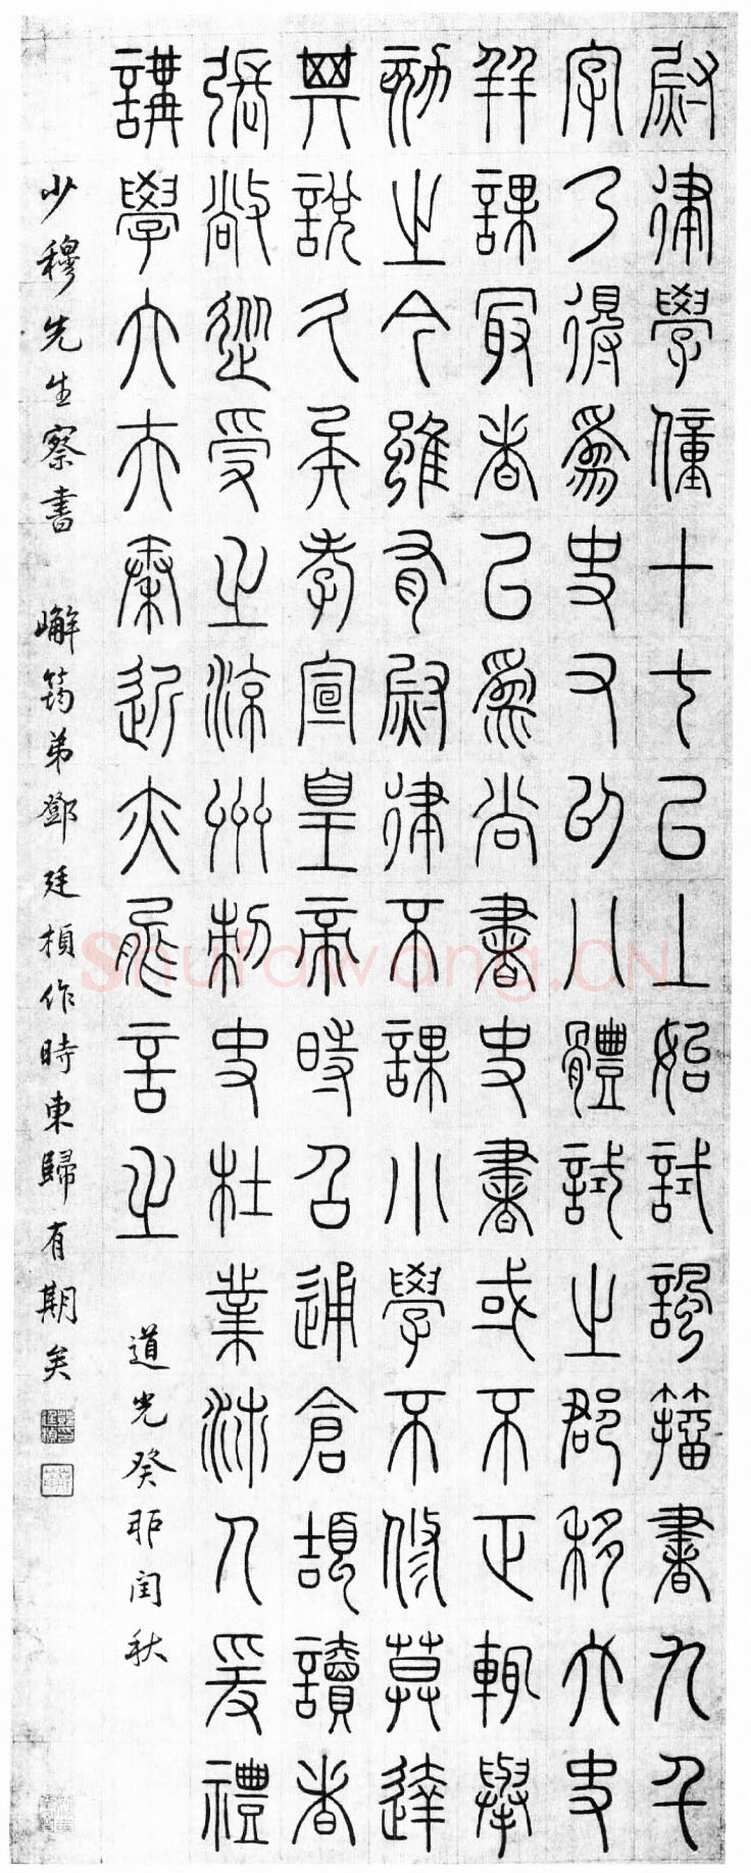 尉律學僮十七已上始試諷籀書九千
字乃得爲吏又以八體試之郡移大史
并課最者以爲尚書史書或不正輒舉
劾之今雖有尉律不課小學不修莫達
其說久矣孝宣皇帝時召通倉頡讀者
張敞從受之涼州刺史杜業沛人爰禮
講學大夫秦近亦能言之 道光癸卯閏秋
少穆先生察書 嶰筠弟鄧廷楨作時東歸有期矣
Shufawang.CN